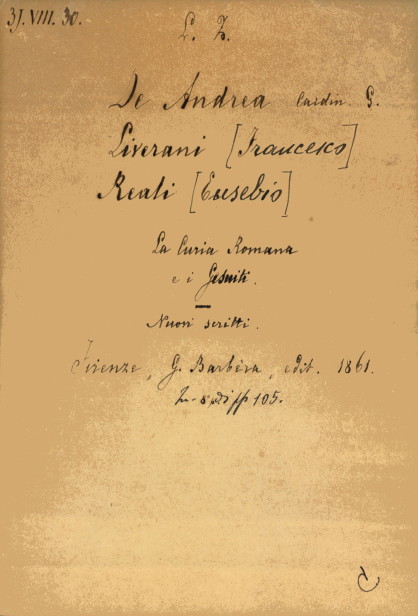 3J. VIII. 30.
L. Z.
De Andrea Cardin. G.
Liverani [Francesco]
Reali [Eusebio]
La Curia Romana
e i Gesuiti.
Nuovi scritti.
Firenze, G. Barbèra, edit. 1861.
In-8 di pp 105.